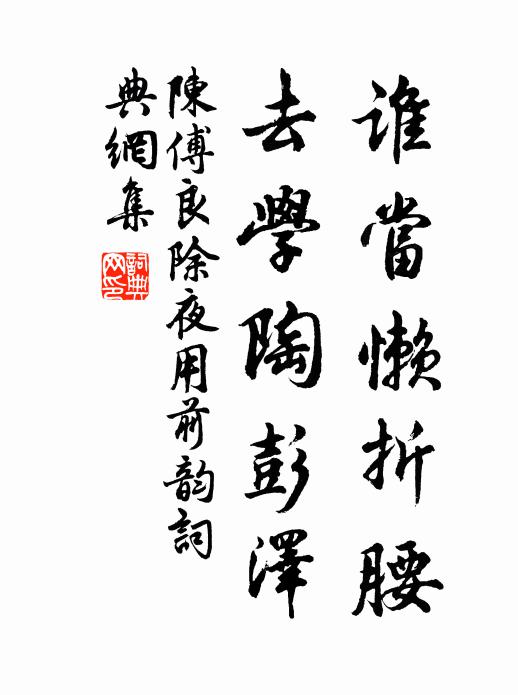 誰當懶折腰
去學陶彭澤
陳傅良除夜用前韵詞
典網集
詞典网印